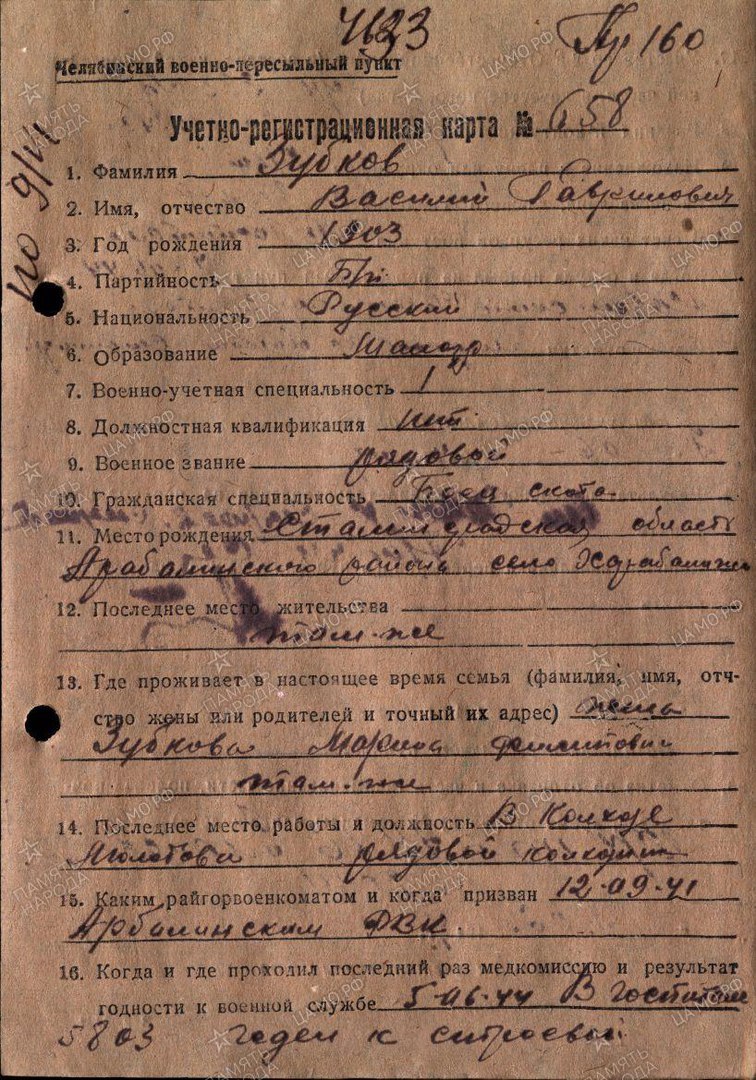 Пр 160
Челябинский военно-пересыльный пункт
Учетно-регистрационная карта № 658
по д/м
1. Фамилия Зубков
2. Имя, отчество Василий Гаврилович
3. Год рождения 1903
4. Партийность Б/п
5. Национальность Русский
6. Образование Малогр
7. Военно-учетная специальность 1
8. Должностная квалификация
9. Военное звание рядовой
10. Гражданская специальность скота
11. Место рождения Сталинградская область
Арабалинского района село
12. Последнее место жительства
там-же
13. Где проживает в настоящее время семья (фамилия, имя, отч-
ство жены или родителей и точный их адрес) жена
Зубкова Марина
там-же
14. Последнее место работы и должность В Колхозе
Молотова рядовой колхозник
15. Каким райгорвоенкоматом и когда призван 12-09-41
Арбалинским РВК
16. Когда и где проходил последний раз медкомиссию и результат
годности к военной службе 5-06-44 В госпитале
5803 годен к строевой